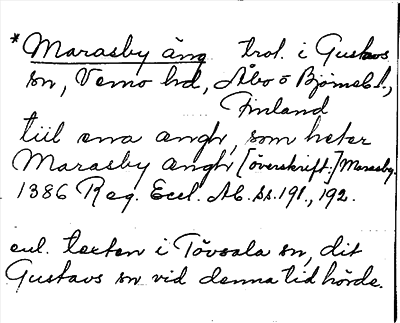 *Marasby äng trol. i Gustavs
sn, Vemo hd, Åbo o Björneb.l.,
Finland
till ena ængh, som heter
Marasby ængh [överskrift:] Marasby.
1386 Reg. Eccl. Ab. ss. 191, 192.
enl. texten i Tövsala sn, dit
Gustavs sn vid denna tid hörde.